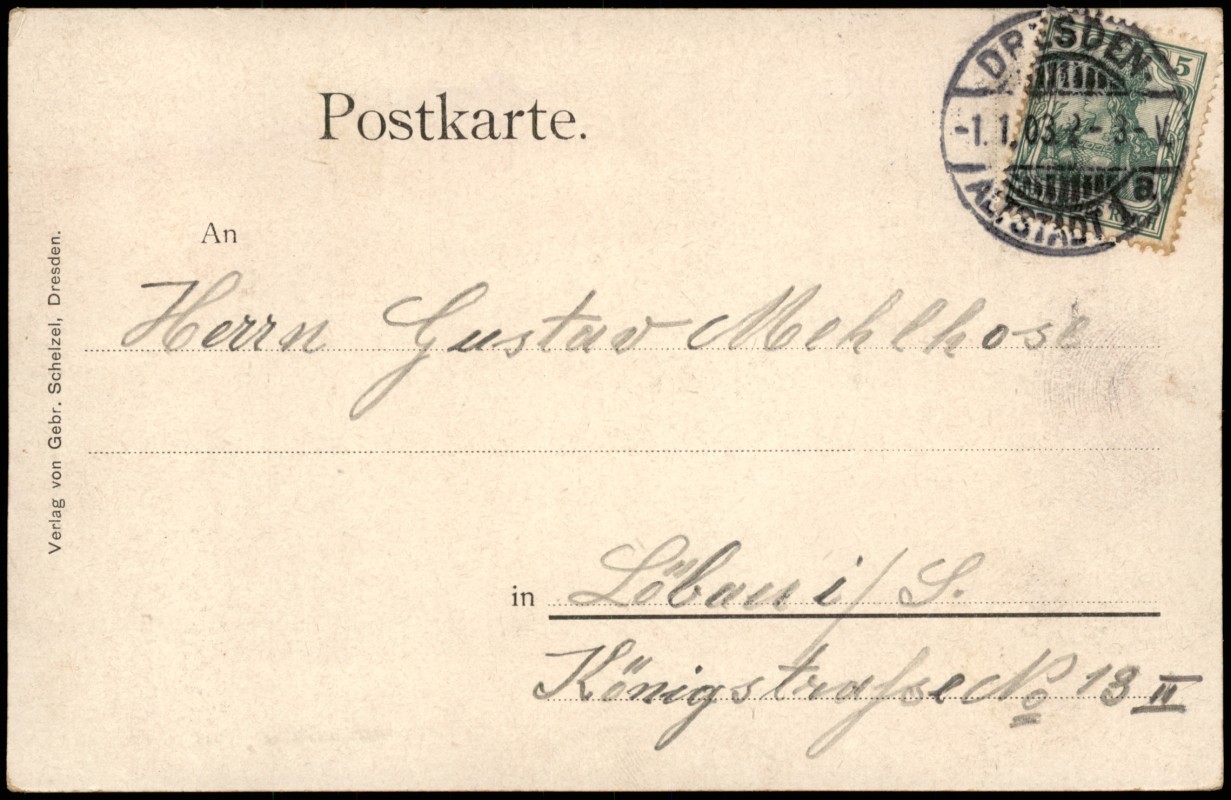 Postkarte.
DRESDEN-
5
-1. 1. 03. 2- 3-V.
a.
ALTSTADT 1
An
Herrn Gustav Mehlhose
in Löbau i/S.
Königstraße No 13 II
Verlag von Gebr. Schelzel, Dresden.